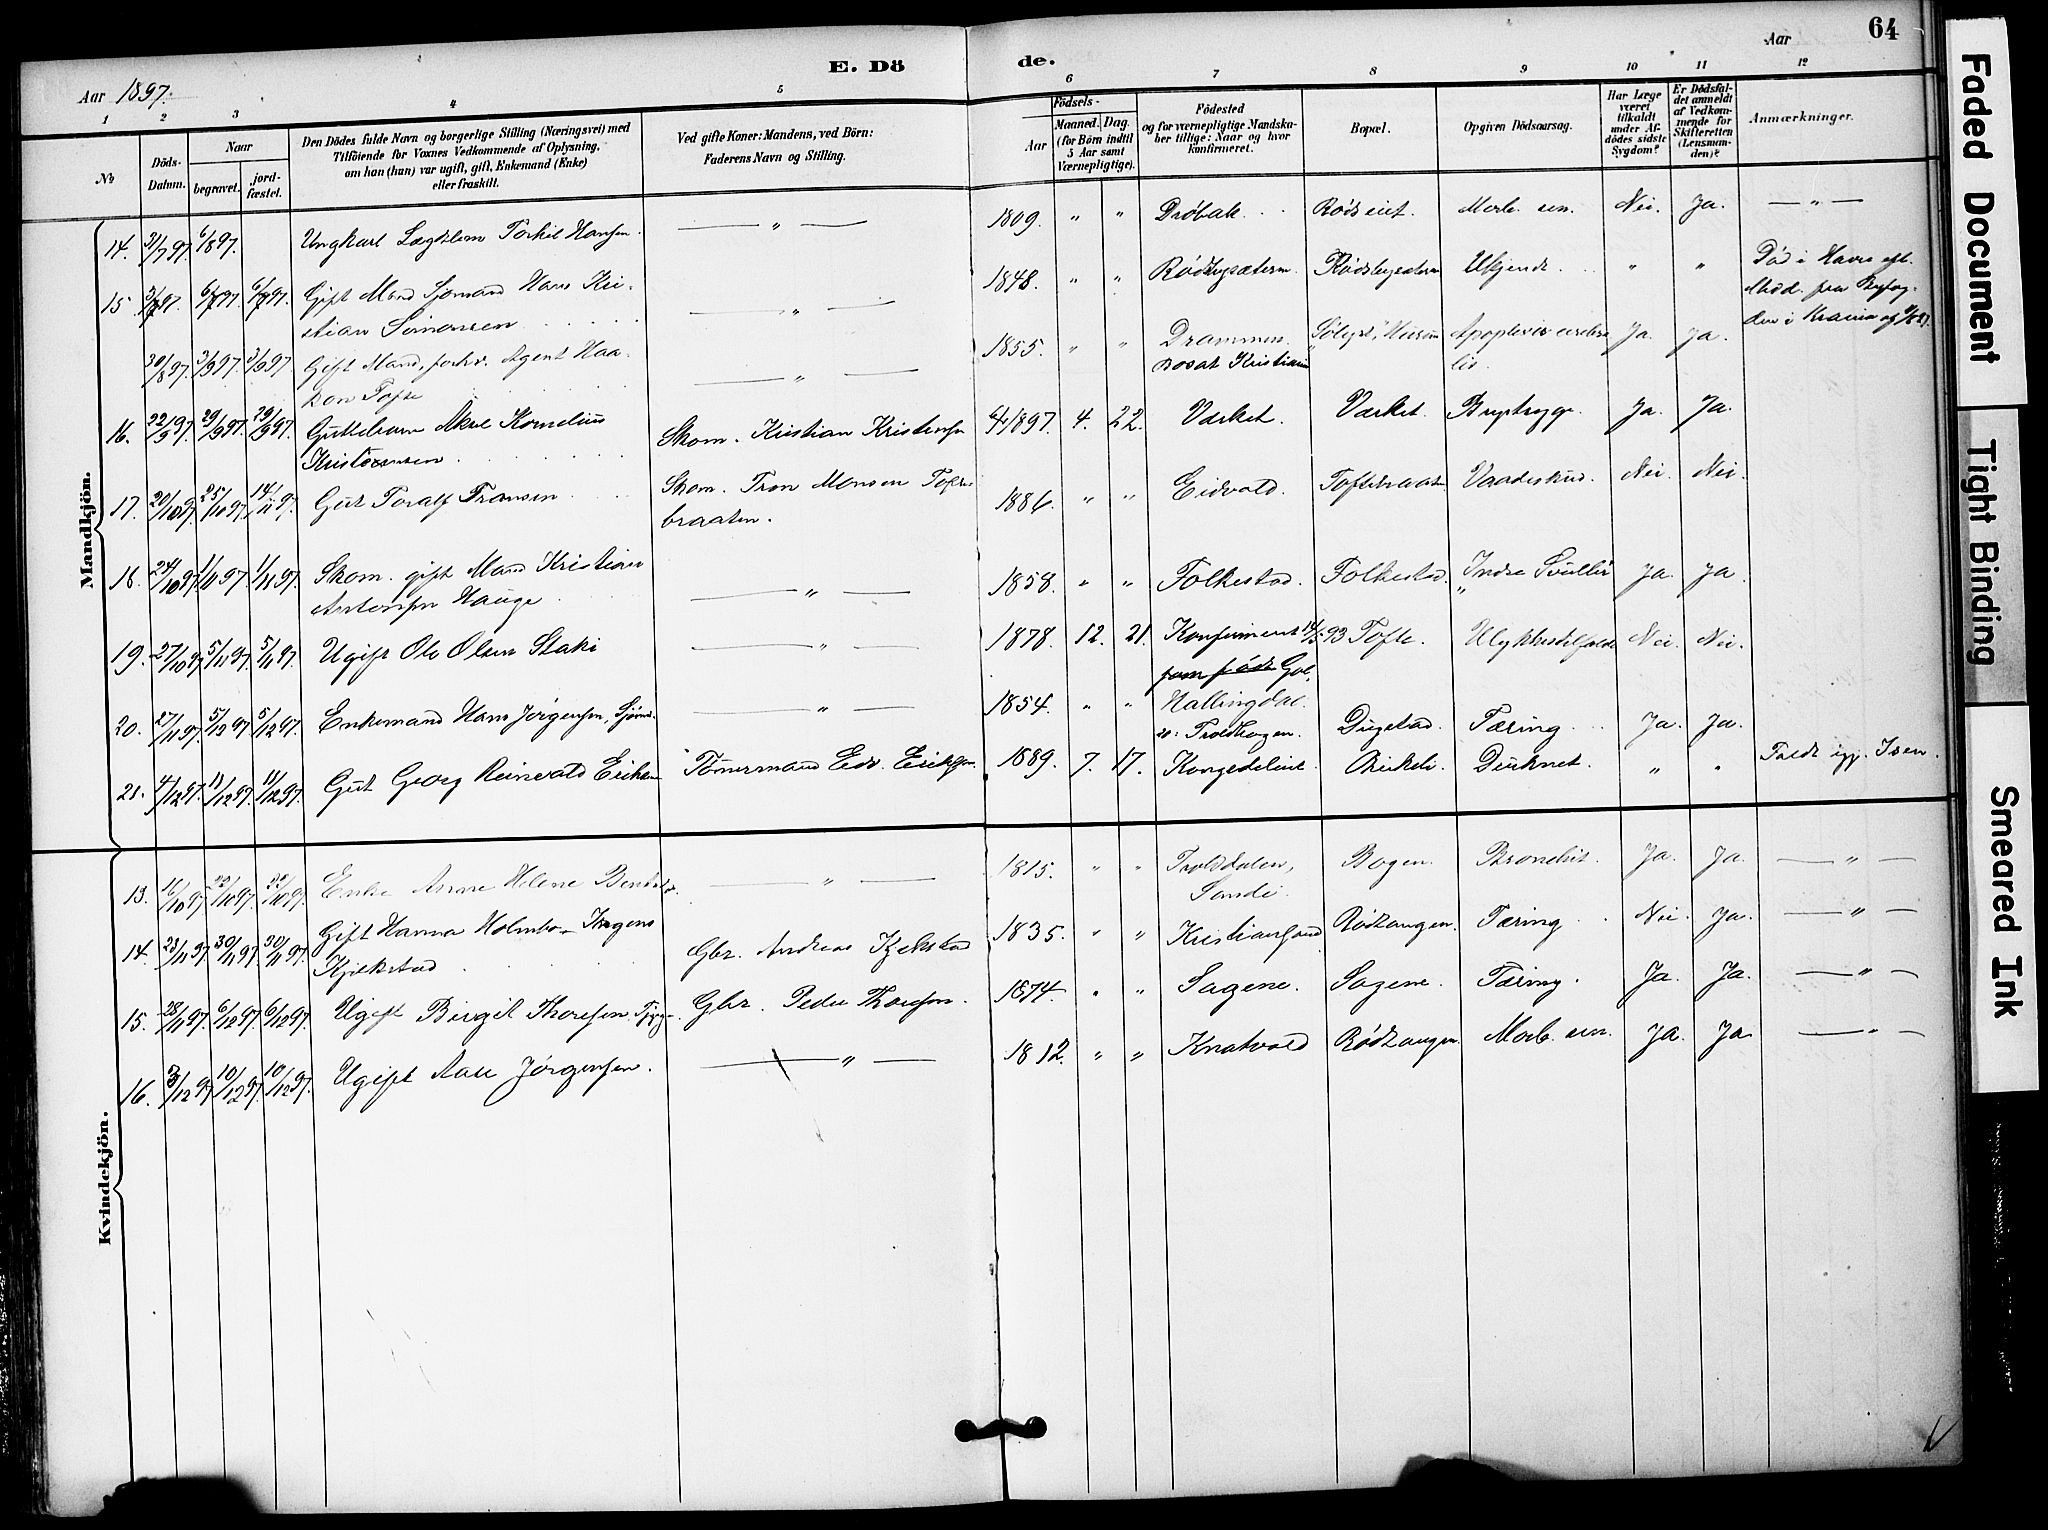 E. Dö de.
Aar 1897.
Aar 64
1 2 3 4 5 6 7 8 9 10 11 12
No
Döds-Datum.
Naar
begravet.
jord-fæstet.
Den Dödes fulde Navn og borgerlige Stilling (Næringsvei) med
Tilföiende for Voxnes Vedkommende af Oplysning,
om han (hun) var ugift, gift, Enkemand (Enke)
eller fraskilt.
Ved gifte Koner: Mandens, ved Börn:
Faderens Navn og Stilling.
Födsels-
Aar
Maaned. Dag.
(for Börn indtil
5 Aar samt
Værnepligtige).
Födested
og for værnepligtige Mandska-
ber tillige: Naar og hvor
konfirmeret.
Bopæl.
Opgiven Dödsaarsag.
Har Læge
været
tilkaldt
under Af-
dödes sidste
Sygdom?
Er Dödsfal-
det anmeldt
af Vedkom-
mende for
Skifteretten
(Lensman-
den)?
Anmærkninger.
Mandkjön.
14. 31/7 97. 6/8 97. Ungkarl Lægdslem Torkil Hansen. — " — 1809. " " Drøbak. Rødseiet. Nei. Ja. — " —
15 6/8 97. Gift Mand Sjømand Hans Kri-
stian Simonsen — " — 1848. " " Rødbysætern. Rødbysætern Ukjendt. " " Død i Havre
30/8 97. 3/9 97 3/9 97 Gift Mand, forhv. Agent Haa-
kon Tofte — " — 1855. " " Drammen.
bosat Kristiania Apoplexia cerebra-
lis. Ja. Ja.
16. 22/9 97. 29/9 97. 29/9 97. Guttebarn Aksel Kornelius
Kristensen. Skom. Kristian Kristensen 1897. 4. 22. Værket. Værket. Ja. Ja.
17. 20/10 97. 25/10 97. 14/11 97. Gut Toralf Transen Skom. Tron Monsen Tofte-
braaten. 1886 " " Eidsvold. Toftebraaten Vaadeskud. Nei. Nei.
18. 24/10 97. 1/11 97 1/11 97. Skom. gift Mand Kristian
Antonsen Hauge. — " — 1858. " " Folkestad. Folkestad. Indre Ja. Ja.
19. 27/10 97. 5/11 97. 5/11 97. Ugift Ole Olsen Staki — " — 1878. 12. 21. Konfirmeret 93 Tofte. Ulykkestilfælde Nei. Nei.
Gol,
Hallingdal.
20. 27/11 97. 5/12 97 5/12 97. Enkemand Hans Jørgensen, Sjømd. — " — 1854. " " Troldhagen. Dugstad. Tæring. Ja. Ja.
21. 4/12 97. 11/12 97. 11/12 97. Gut Georg Reinevald Eriksen Tömermand Edv. Eriksen. 1889. 7. 17. Kongsdelene. Druknet. " " Faldt igj. Isen.
Kvindekjön.
13. 16/10 97 22/10 97. 22/10 97. Enke Anne Helene — " — 1815. " " Trolddalen,
Sande. Bogen. Bronchit. Ja. Ja. — " —
14. 23/11 97. 30/11 97. 30/11 97. Gift Hanna Holmbo
Kjekstad. Gbr. Andreas Kjekstad 1835. " " Kristiansand Rødtangen. Tæring. Nei. Ja. — " —
15. 28/11 97. 6/12 97. 6/12 97. Ugift Birgit Thoresen. Gbr. Peder Thoresen. 1874. " " Sagene. Sagene. Tæring. Ja. Ja. — " —
16. 3/12 97. 10/12 97. 10/12 97. Ugift Aase Jørgensen. — " — 1812. " " Knatvold Rødtangen. Ja. Ja — " —
Faded Document
Tight Binding
Smeared Ink